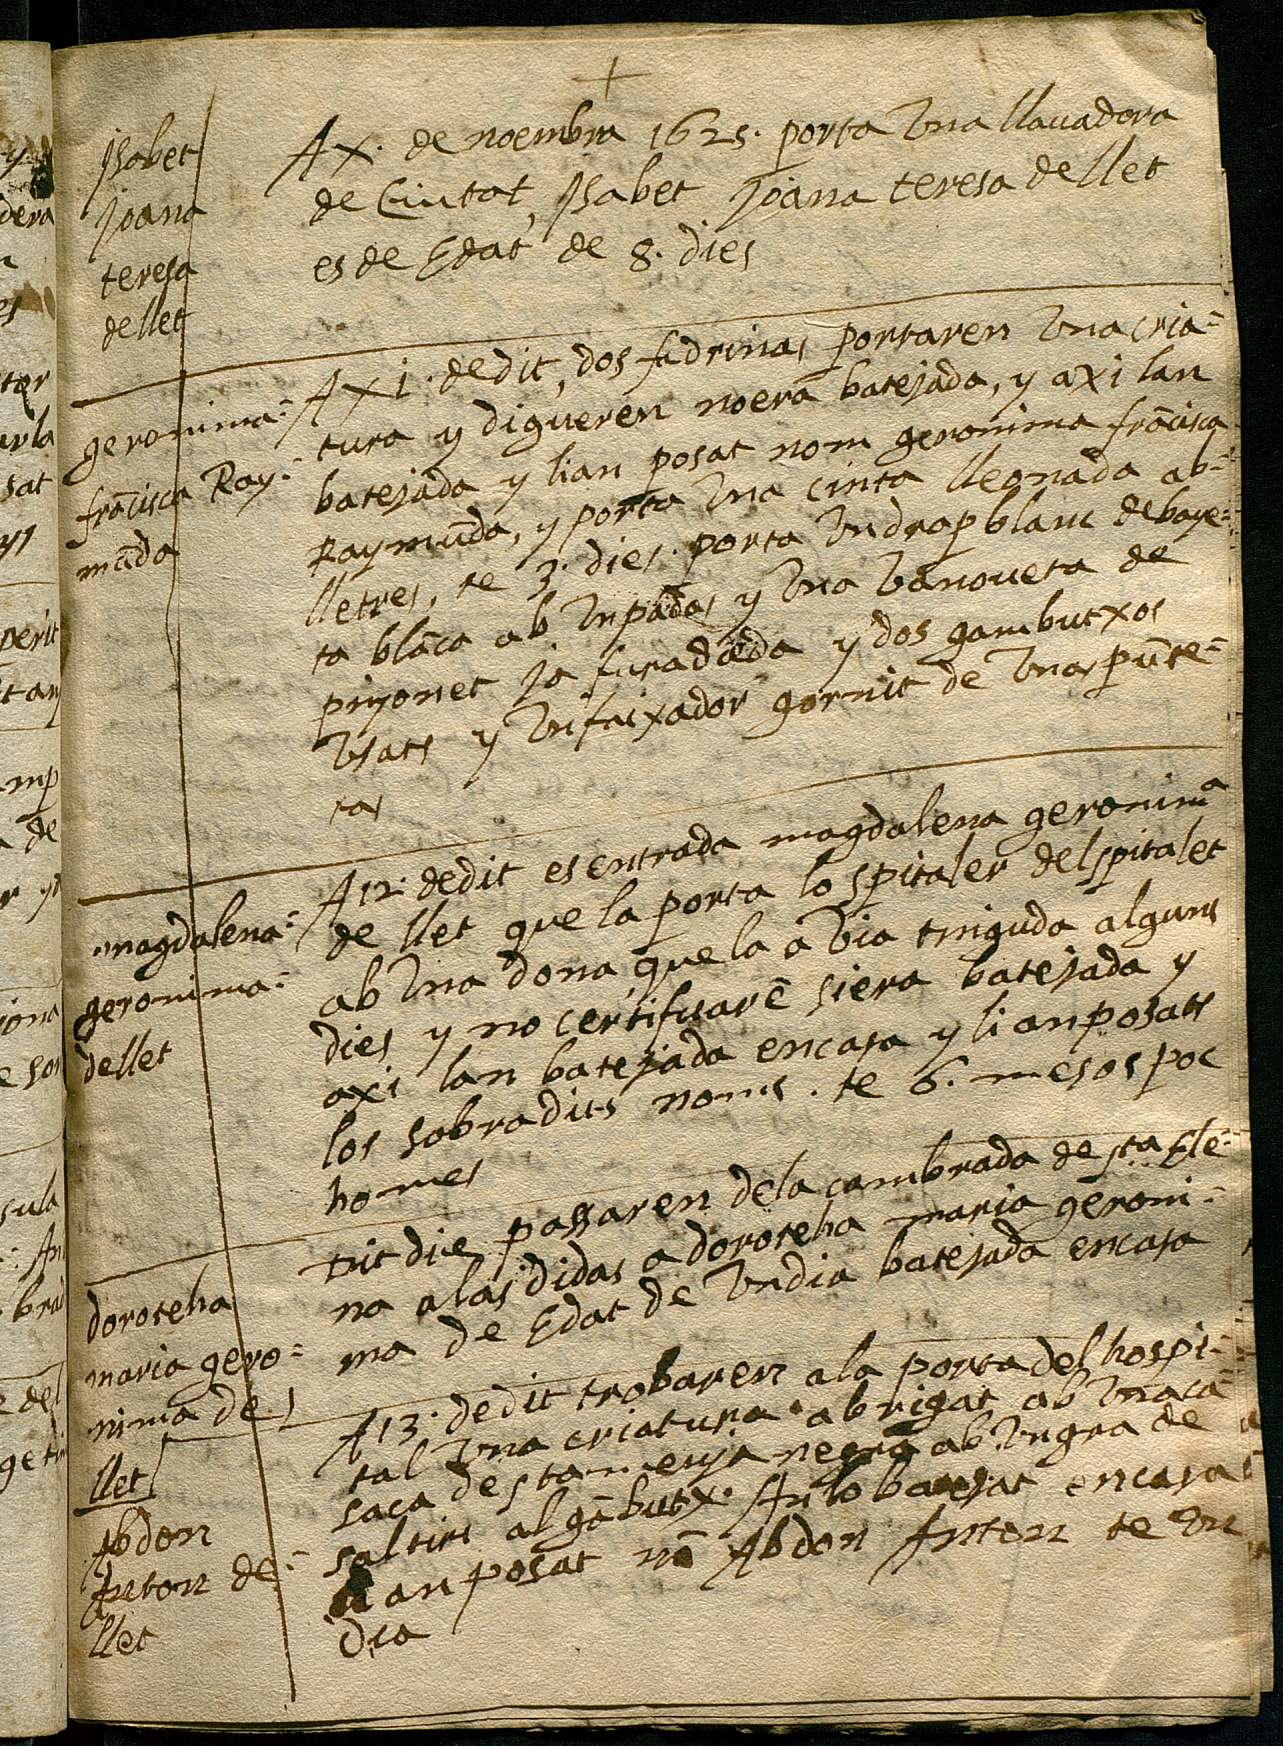 +
Jsabet
Joana
teresa
de llet
A x. de noembra 1625. porta vna llauadora
de Ciutat, Jsabet Joana teresa de llet
es de Edat de 8. dies
geronima=
frãcisca Ray=
mũda
A xi. de dit, dos fadrinas portaren vna cria=
tura y digueren no era batejada, y axi lan
batejada y lian posat nom geronima frãcisca
Raymũda, y porta vna cinta lleonada ab=
lletres, te 3. dies. porta vn drap blanc de baye=
ta blãca ab vn pãdas y vna vanoueta de
pinyonet ja furadada y dos gambutxos
vsats y vn faixador gornit de vnas pũte=
tas
magdalena=
geronima=
de llet
A 12. de dit es entrada magdalena geronima
de llet que la porta lo spitaler del spitalet
ab vna dona que la a via tinguda alguns
dies y no certificarẽ si era batejada y
axi lan batejada en casa y li an posats
los sobradits noms. te 6. mesos poc
ho mes
doroteha
maria gero=
nima de
llet
Dit die passaren de la cambrada de sta Ele=
na a las didas a doroteha maria geroni=
ma de Edat de vn dia batejada en casa
Abdon
Anton de=
llet
A 13. de dit trobaren a la porta del hospi=
tal vna criatura abrigat ab vna ca=
saca de stamenya negra ab vngra de
saltirs al gãbutx. An lo batejat en casa
li an posat nõ Abdon Anton te vn
dia